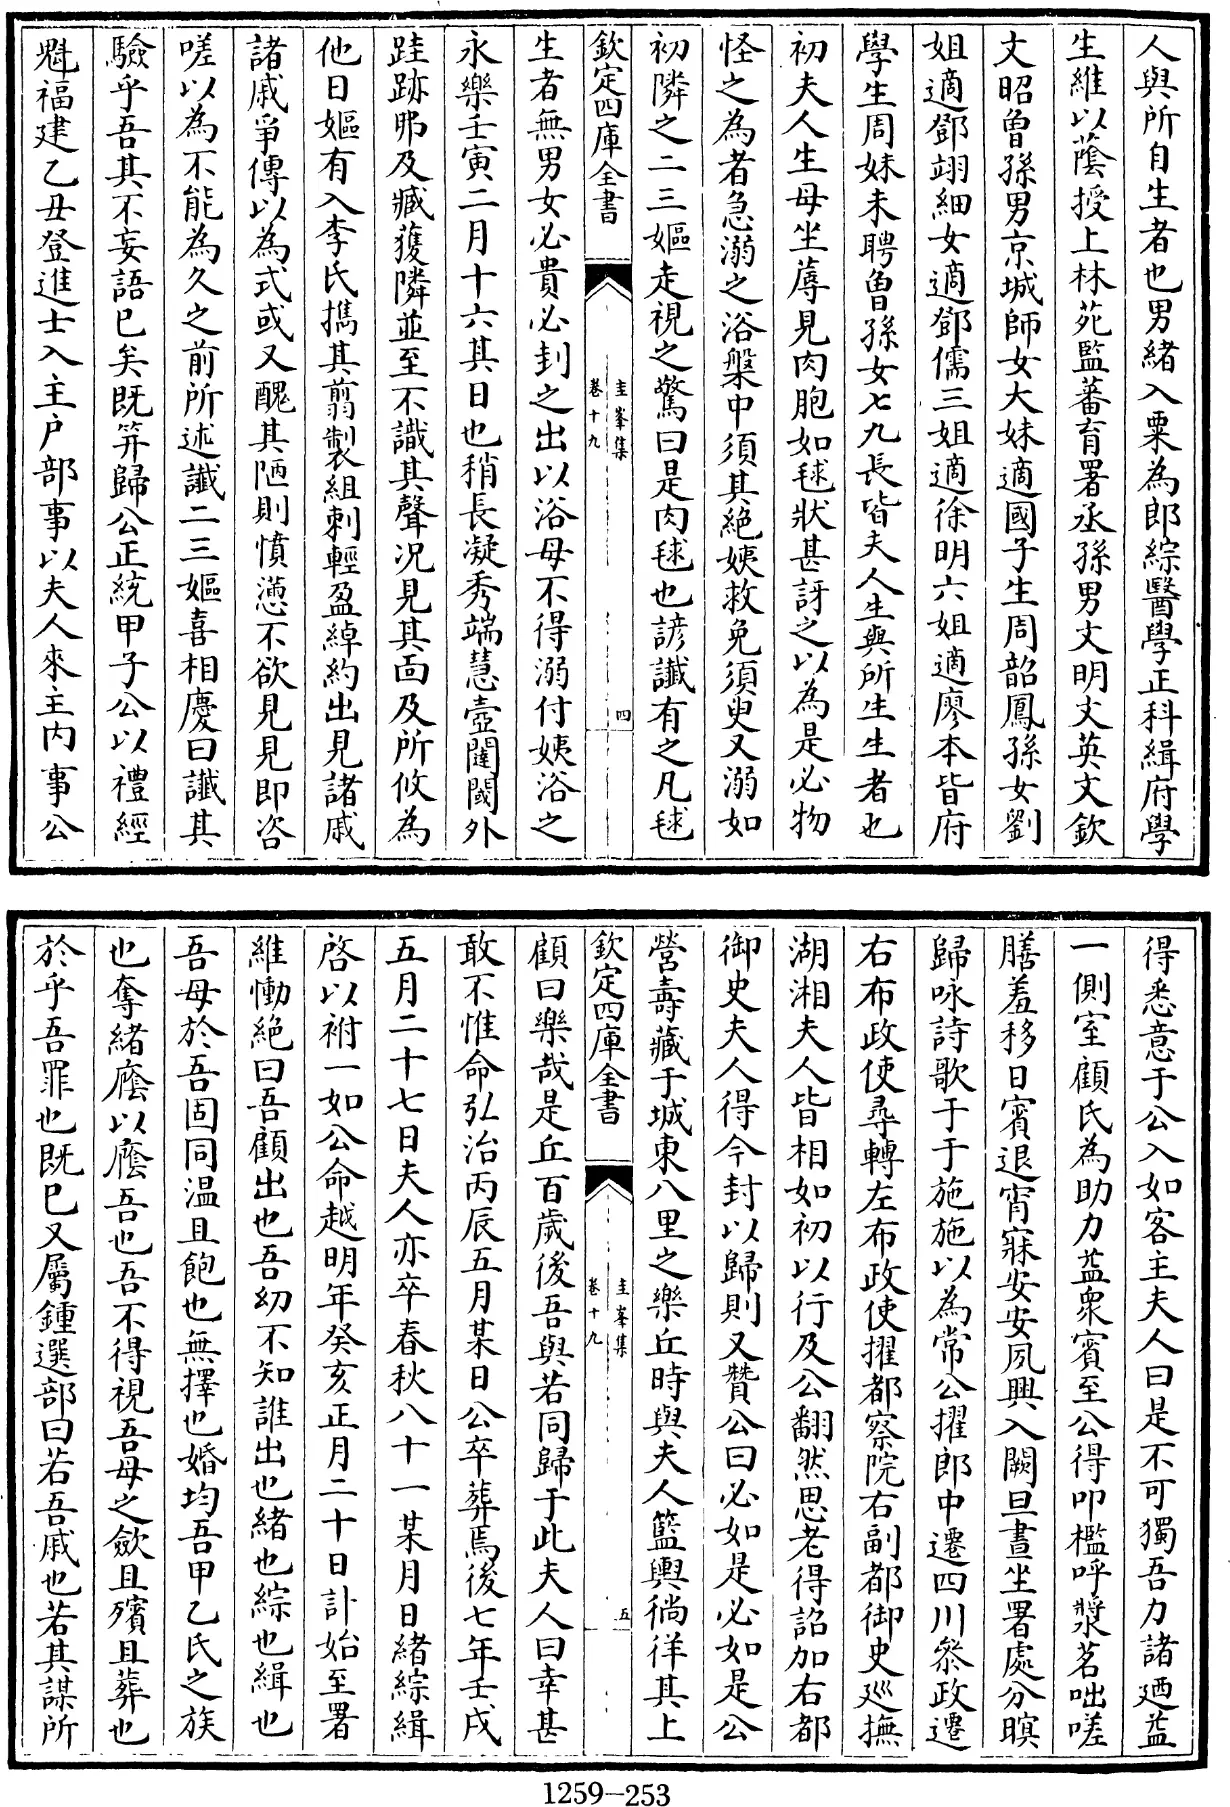 人與所自生者也男緒入粟為郎綜醫學正科緝府學
生維以蔭授上林苑監蕃育署丞孫男文明文英文欽
文昭曽孫男京城師女大妹適國子生周韶鳳孫女劉
姐適鄧翊細女適鄧儒三姐適徐明六姐適廖本皆府
學生周妹未聘曽孫女七九長皆夫人生與所生生者也
初夫人生母坐蓐見肉胞如毬狀甚訝之以為是必物
怪之為者急溺之浴槃中須其絶姨救免須臾又溺如
初隣之二三嫗走視之驚曰是肉毬也諺讖有之凡毬
欽定四庫全書
圭峯集
卷十九
四
生者無男女必貴必封之出以浴母不得溺付姨浴之
永樂壬寅二月十六其日也稍長凝秀端慧壼闥閾外
跬跡乕及臧獲隣並至不識其聲况見其面及所攸為
他日嫗有入李氏擕其翦製組刺輕盈綽約出見諸戚
諸戚爭傳以為式或又醜其陋則憤懣不欲見見即咨
嗟以為不能為久之前所述讖二三嫗喜相慶曰讖其
驗乎吾其不妄語已矣既笄歸公正統甲子公以禮經
魁福建乙丑登進士入主户部事以夫人來主内事公
得悉意于公入如客主夫人曰是不可獨吾力諸廼益
一側室顧氏為助力益衆賓至公得叩檻呼漿茗咄嗟
膳羞移日賓退宵寐安安夙興入闕旦晝坐署處分暝
歸咏詩歌于于施施以為常公擢郎中遷四川叅政遷
右布政使尋轉左布政使擢都察院右副都御史廵撫
湖湘夫人皆相如初以行及公翻然思老得詔加右都
御史夫人得今封以歸則又贊公曰必如是必如是公
營壽藏于城東八里之樂丘時與夫人籃輿徜徉其上
欽定四庫全書
圭峯集
卷十九
五
顧曰樂哉是丘百歲後吾與若同歸于此夫人曰幸甚
敢不惟命弘治丙辰五月某日公卒葬焉後七年壬戌
五月二十七日夫人亦卒春秋八十一某月日緒綜緝
啓以祔一如公命越明年癸亥正月二十日訃始至署
維慟絶曰吾顧出也吾幼不知誰出也緒也綜也緝也
吾母於吾固同温且飽也無擇也婚均吾甲乙氏之族
也奪緒廕以廕吾也吾不得視吾母之歛且殯且葬也
於乎吾罪也既已又屬鍾選部曰若吾戚也若其謀所
1259-253